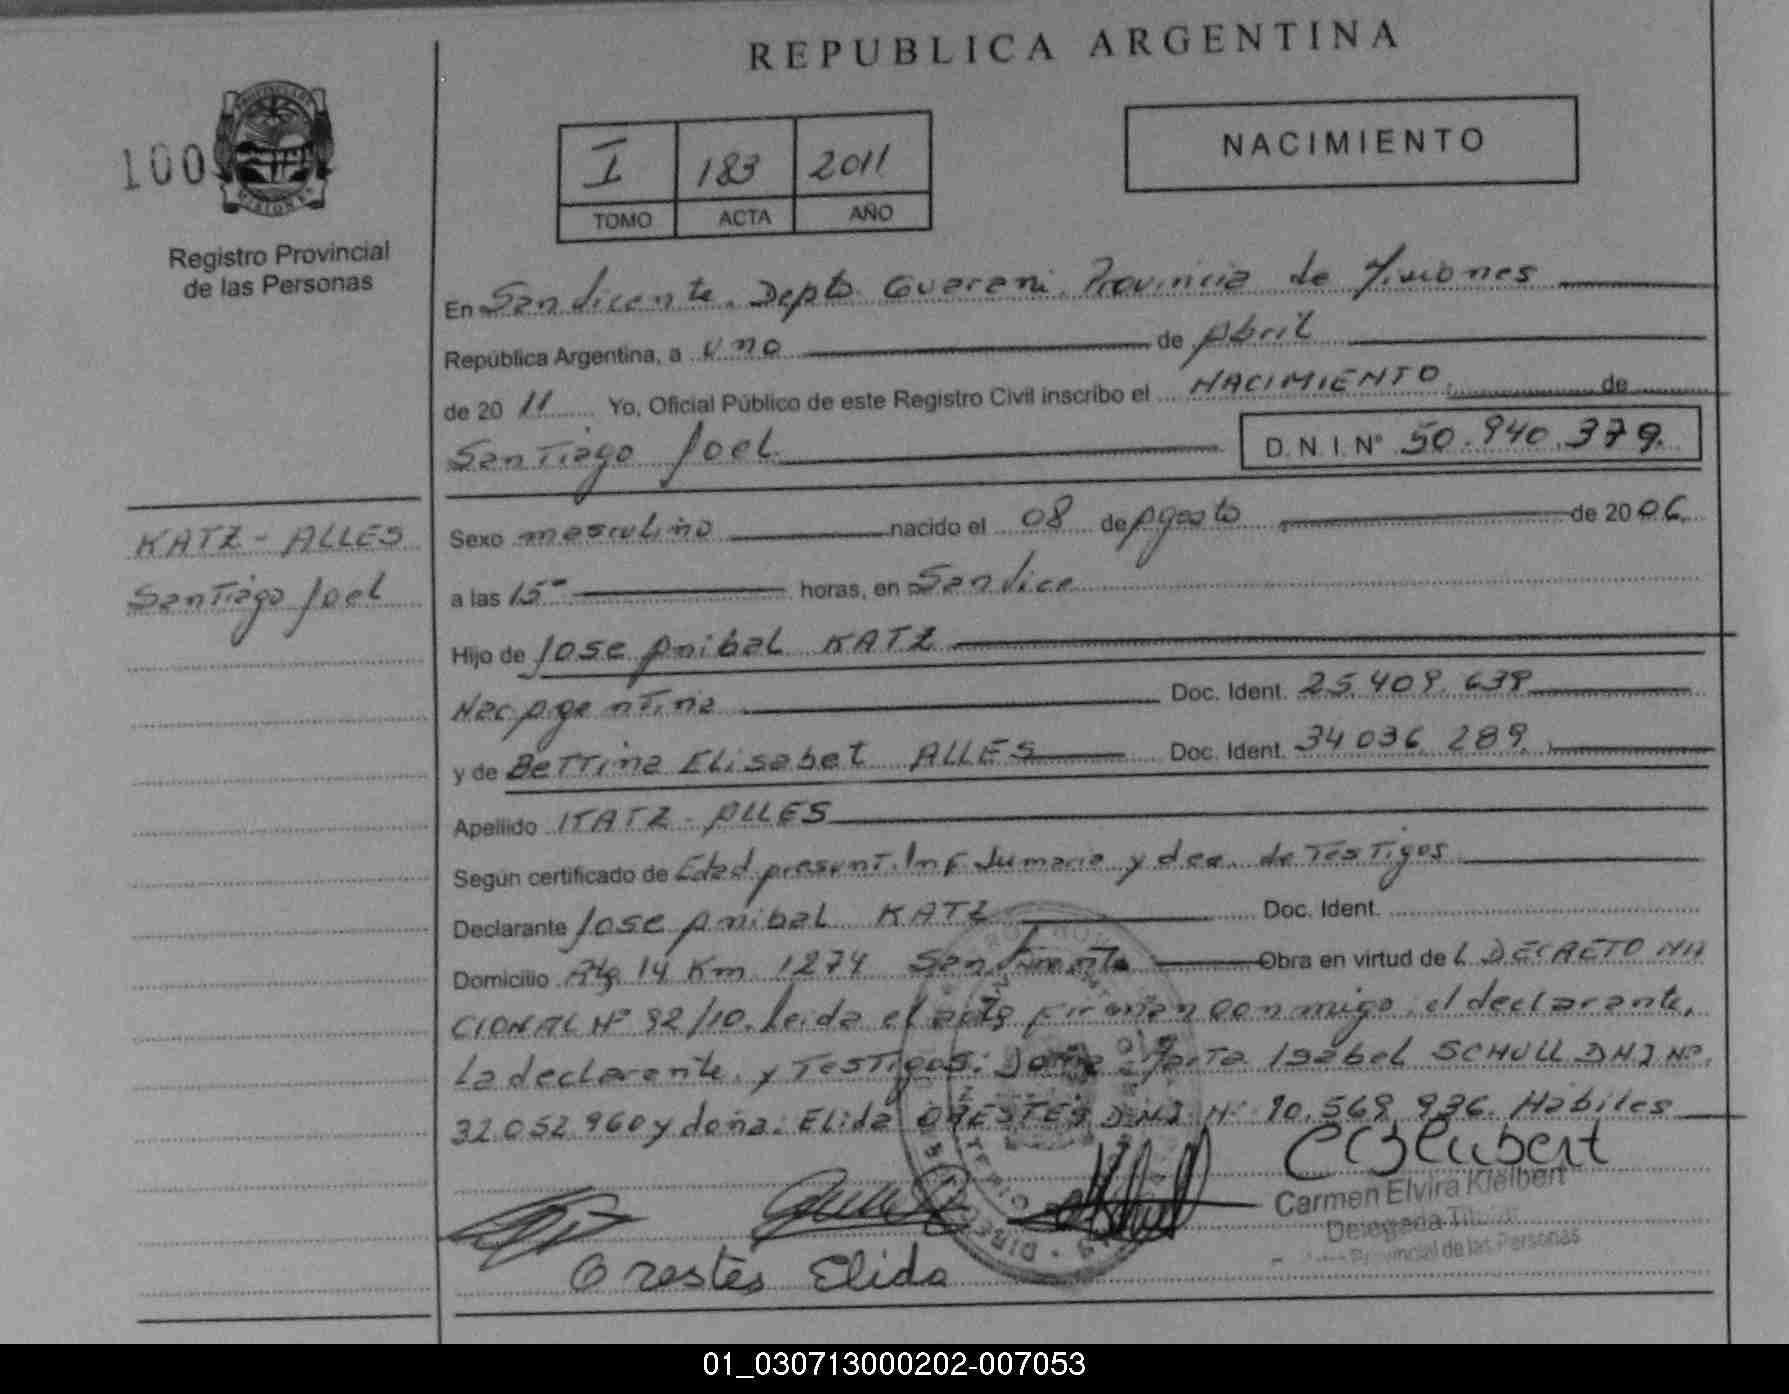 REPUBLICA ARGENTINA
100
Registro Provincial
de las Personas
I 183 2011
TOMO ACTA AÑO
NACIMIENTO
En San Vicente. Depto Guarani. Provincia de Misiones
República Argentina, a uno de Abril
de 2011 Yo, Oficial Público de este Registro Civil inscribo el NACIMIENTO de
Santiago Joel D.N.I. Nº 50.940.379.
KATZ - ALLES
Santiago Joel
Sexo masculino nacido el 08 de Agosto de 2006.
a las 15 horas, en San Vice
Hijo de Jose Anibal KATZ
Nac Argentina Doc. Ident. 25.409.639
y de Bettina Elisabet ALLES Doc. Ident. 34 036 289
Apellido KATZ - ALLES
Según certificado de Edad presunt. Inf Sumaria y dec. de Testigos
Declarante Jose Anibal KATZ Doc. Ident.
Domicilio Rta 14 Km 1274 San Vicente Obra en virtud del DECRETO NA
CIONAL Nº 92/10. leida el acta firman conmigo, el declarante,
la declarante, y Testigos: Doña Isabel SCHULL DNI Nº
32 052 960 y doña: Elida ORESTES DNI Nº 10.569.936. Habiles
Orestes Elida
Carmen Elvira Kleibert
Delegada Titular
Provincial de las Personas
01_030713000202-007053